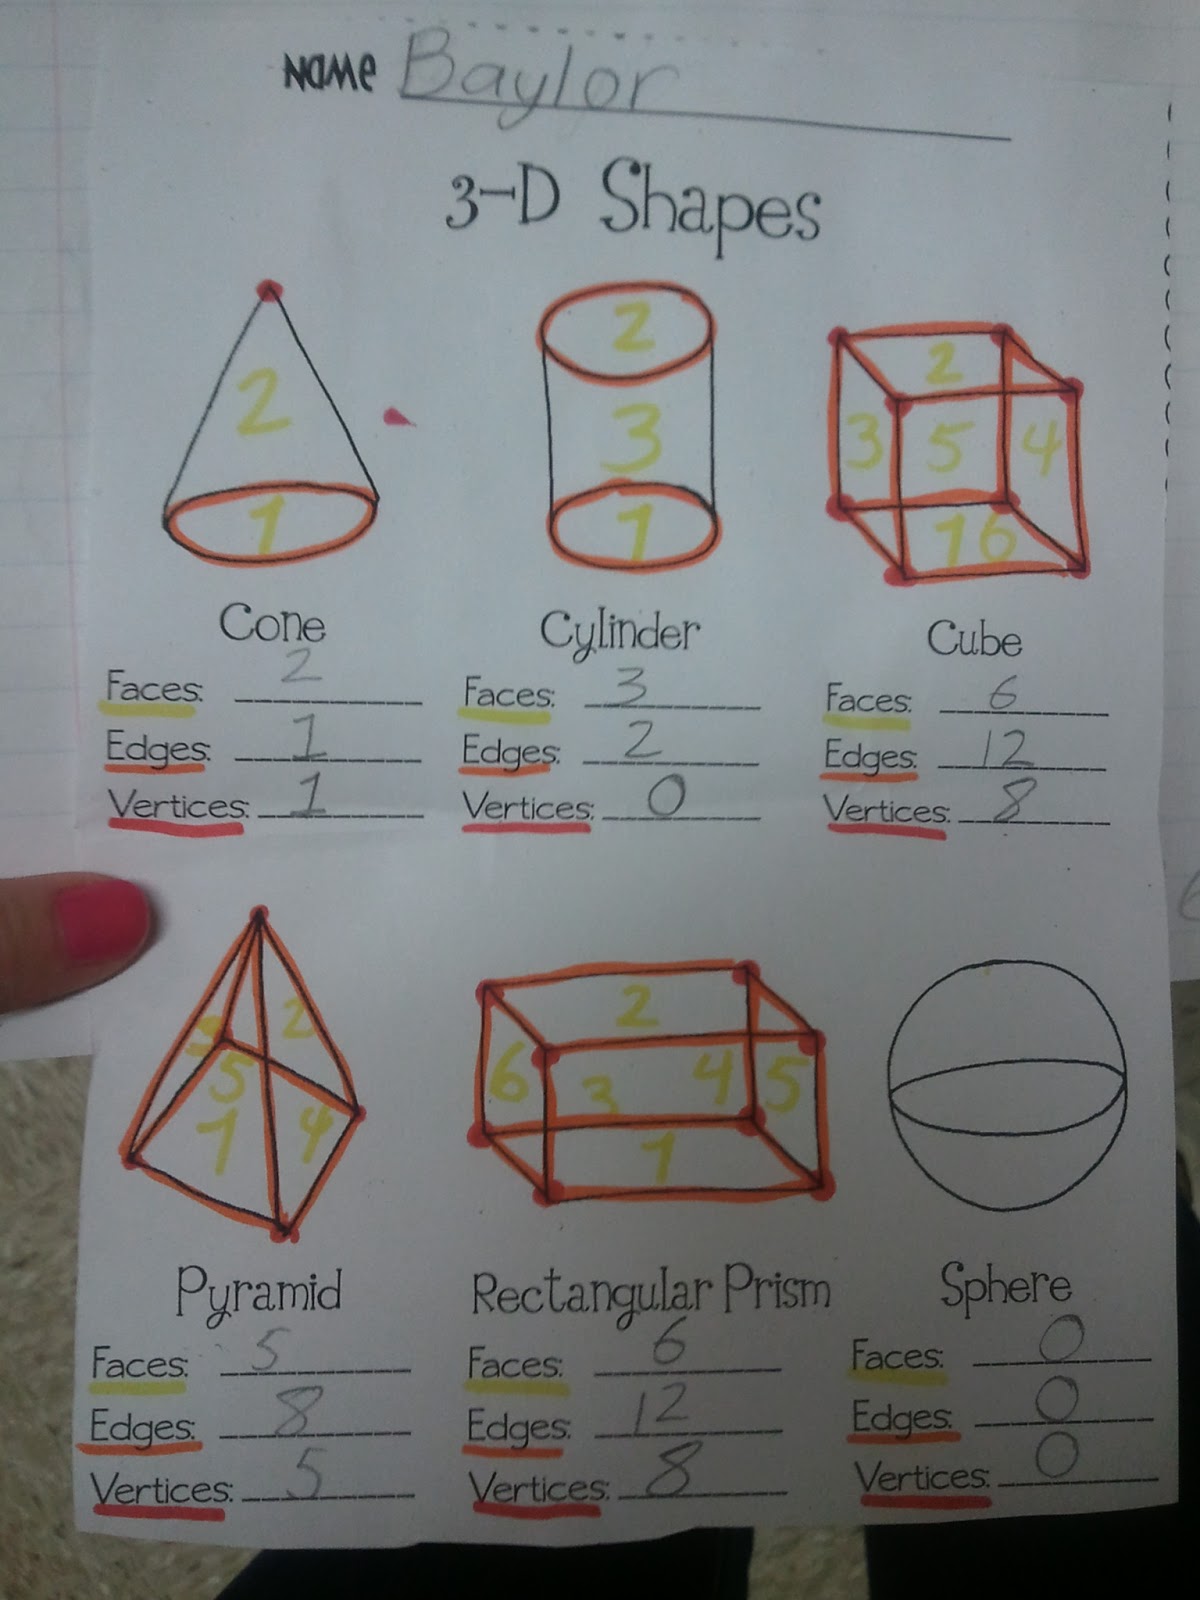 NAME Baylor
3-D Shapes
2 2 2
2 3 3 5 4
1 1 1 6
Cone Cylinder Cube
Faces: 2 Faces: 3 Faces: 6
Edges: 1 Edges: 2 Edges: 12
Vertices: 1 Vertices: 0 Vertices: 8
3 2 2
5 6 3 4 5
1 4 1
Pyramid Rectangular Prism Sphere
Faces: 5 Faces: 6 Faces: 0
Edges: 8 Edges: 12 Edges: 0
Vertices: 5 Vertices: 8 Vertices: 0